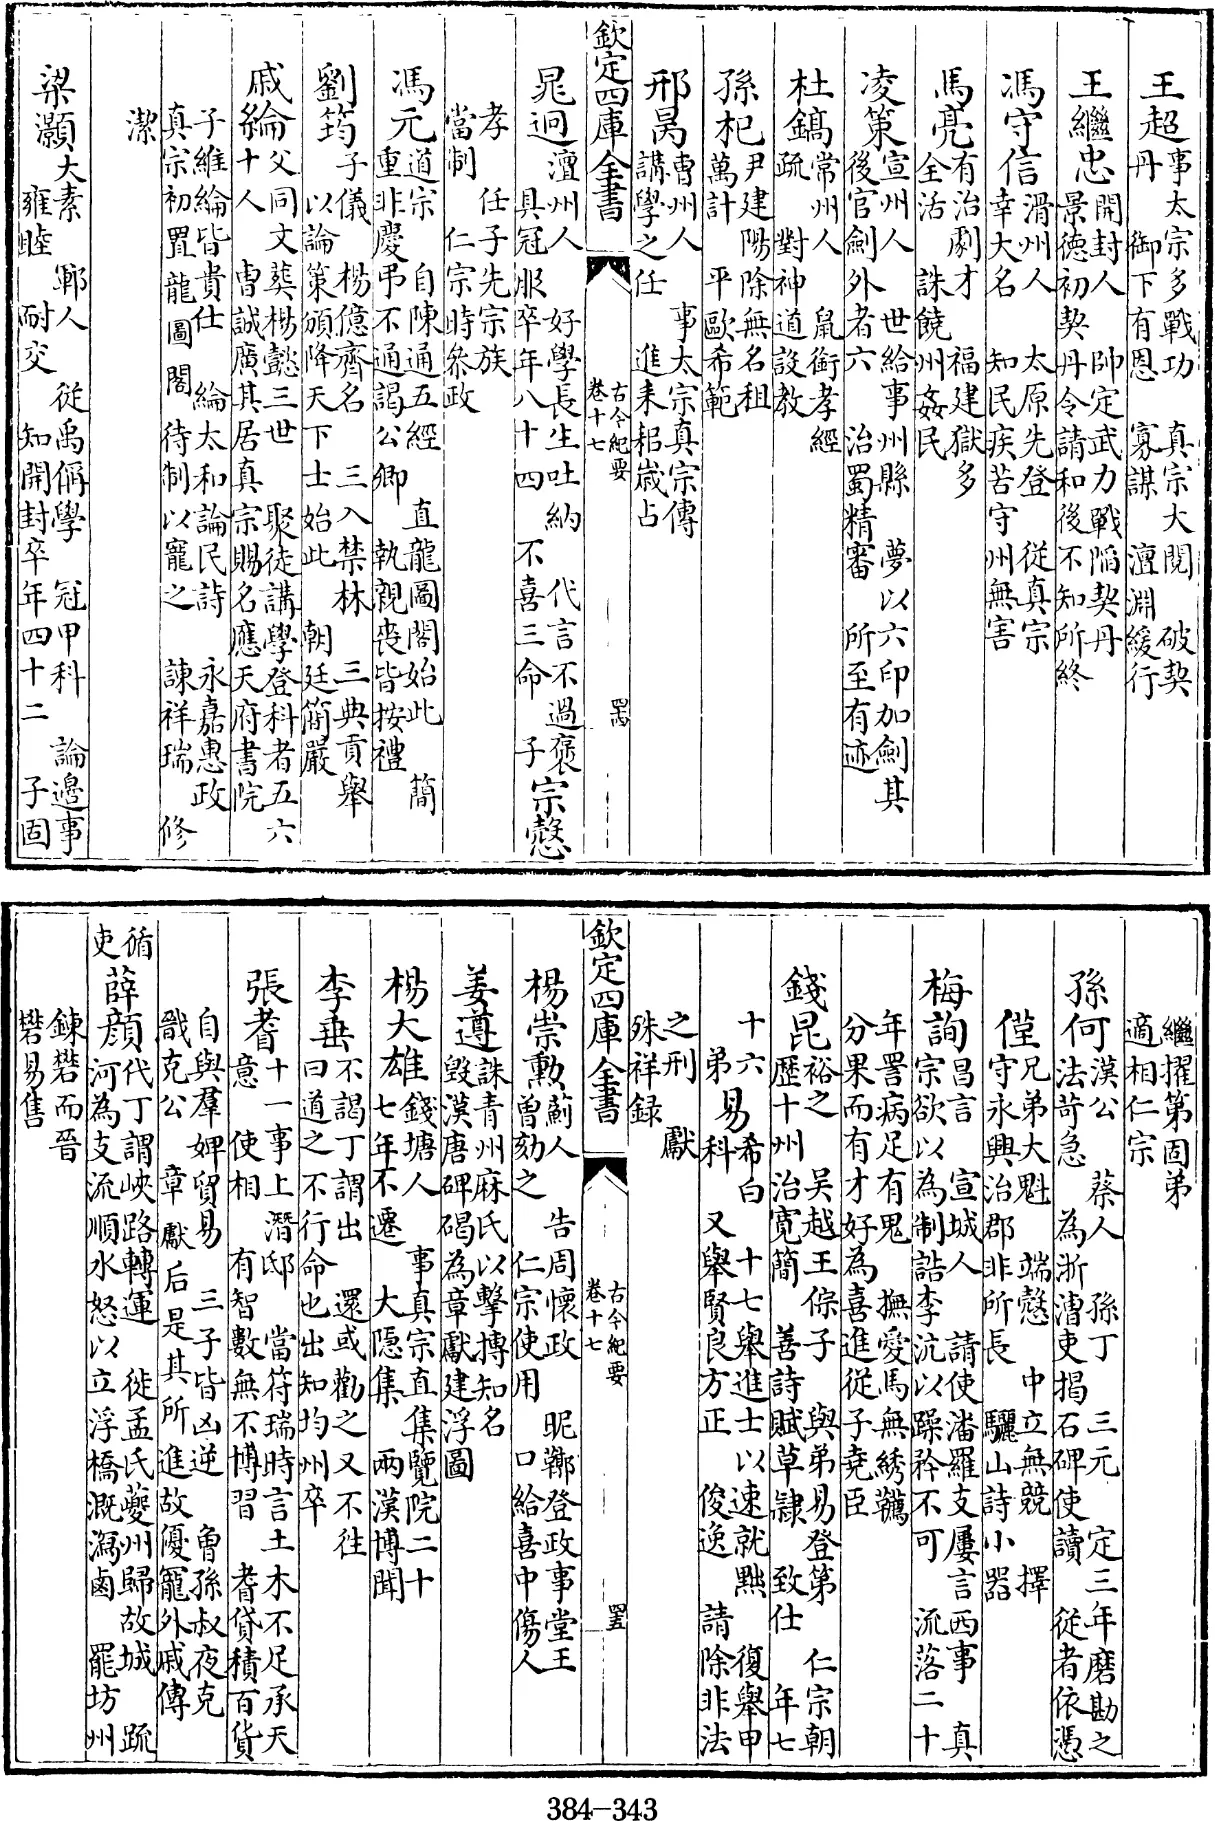 王超事太宗多戰功 真宗大閱 破契
丹 御下有恩 寡謀 澶淵緩行
王繼忠開封人 帥定武力戰陷契丹
景德初契丹令請和後不知所終
馮守信滑州人 太原先登 從真宗
幸大名 知民疾苦守州無害
馬亮有治劇才 福建獄多
全活 誅饒州姦民
凌策宣州人 世給事州縣 夢以六印加劍其
後官劍外者六 治蜀精審 所至有迹
杜鎬常州人 鼠銜孝經
疏 對神道設教
孫杞尹建陽除無名租
萬計 平歐希範
邢昺曹州人 事太宗真宗傳
講學之任 進耒耜歲占
欽定四庫全書
古今紀要
卷十七
晁迥澶州人 好學長生吐納 代言不過褒
具冠服卒年八十四 不喜三命 子宗慤
孝 任子先宗族
當制 仁宗時參政
馮元道宗 自陳通五經 直龍圖閣始此 簡
重非慶弔不通謁公卿 執親喪皆按禮
劉筠子儀 楊億齊名 三入禁林 三典貢舉
以論策頒降天下士始此 朝廷簡嚴
戚綸父同文葬楊懿三世 聚徒講學登科者五六
十人 曹誠廣其居真宗賜名應天府書院
子維綸皆貴仕 綸太和諭民詩 永嘉惠政
真宗初置龍圖閣待制以寵之 諫祥瑞 修
潔
梁灝太素 鄆人 從禹偁學 冠甲科 論邊事
雍睦 耐交 知開封卒年四十二 子固
繼擢第固弟
適相仁宗
孫何漢公 蔡人 孫丁 三元 定三年磨勘之
法苛急 為浙漕吏揭石碑使讀 從者依憑
僅兄弟大魁 端慤 中立無競 擇
守永興治郡非所長 驪山詩小器
梅詢昌言 宣城人 請使潘羅支屢言西事 真
宗欲以為制誥李沆以躁矜不可 流落二十
年詈病足有鬼 撫愛馬無綉韉
分果而有才好為喜進從子堯臣
錢昆裕之 吳越王倧子 與弟易登第 仁宗朝
歷十州治寬簡 善詩賦草隸 致仕 年七
十六
弟易希白 十七舉進士以速就黜 復舉甲
科 又舉賢良方正 俊逸 請除非法
之刑 獻
殊祥録
欽定四庫全書
古今紀要
卷十七
楊崇勲薊人 告周懷政 昵鄉登政事堂王
曾劾之 仁宗使用 口給喜中傷人
姜遵誅青州麻氏以擊搏知名
毁漢唐碑碣為章獻建浮圖
楊大雄錢塘人 事真宗直集賢院二十
七年不遷 大隱集 兩漢博聞
李垂不謁丁謂出 還或勸之又不往
曰道之不行命也出知均州卒
張耆十一事上潛邸 當符瑞時言土木不足承天
意 使相 有智數無不博習 耆貸積百貨
自與羣婢貿易 三子皆凶逆 魯孫叔夜克
戩克公 章獻后是其所進故優寵外戚傳
循
吏
薛顔代丁謂峽路轉運 徙孟氏夔州歸故城 疏
河為支流順水怒以立浮橋溉瀉鹵 罷坊州
鍊礬而晉
礬易售
384-343